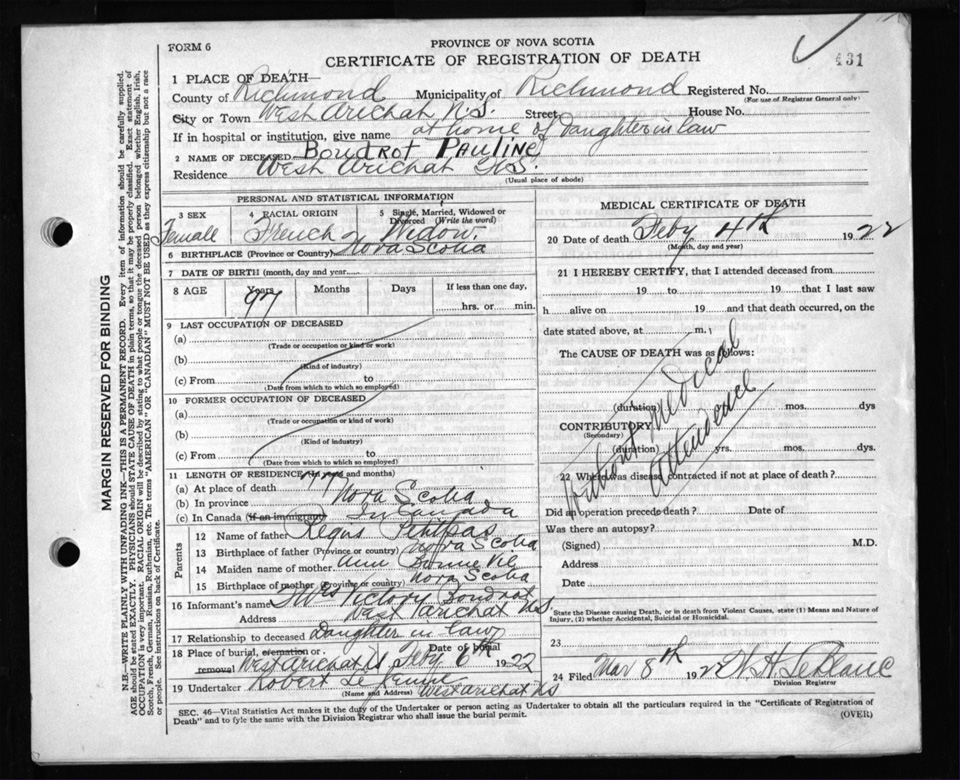 FORM 6
PROVINCE OF NOVA SCOTIA
CERTIFICATE OF REGISTRATION OF DEATH
431
1 PLACE OF DEATH—
County of Richmond Municipality of Richmond Registered No.
(For use of Registrar General only)
City or Town West Arichat N.S. Street House No.
If in hospital or institution, give name at home of Daughter in law
2 NAME OF DECEASED Boudrot Pauline
Residence West Arichat N.S.
(Usual place of abode)
PERSONAL AND STATISTICAL INFORMATION
3 SEX 4 RACIAL ORIGIN 5 Single, Married, Widowed or Divorced (Write the word)
Female French Widow.
6 BIRTHPLACE (Province or Country) Nova Scotia
7 DATE OF BIRTH (month, day and year)
8 AGE Years Months Days If less than one day,
97 hrs. or min.
9 LAST OCCUPATION OF DECEASED
(a)
(Trade or occupation or kind of work)
(b)
(Kind of industry)
(c) From to
(Date from which to which so employed)
10 FORMER OCCUPATION OF DECEASED
(a)
(Trade or occupation or kind of work)
(b)
(Kind of industry)
(c) From to
(Date from which to which so employed)
11 LENGTH OF RESIDENCE (in years and months)
(a) At place of death
(b) In province Nova Scotia
(c) In Canada (if an immigrant) In Canada
Parents
12 Name of father Regus Petitpas
13 Birthplace of father (Province or country) Nova Scotia
14 Maiden name of mother Ann
15 Birthplace of mother (Province or country) Nova Scotia
16 Informant's name Mrs Victory Boudrot
Address West Arichat NS
17 Relationship to deceased Daughter in law
18 Place of burial, cremation or removal Date of burial
West Arichat NS Feby 6th 1922
19 Undertaker Robert
(Name and Address) West Arichat NS
MEDICAL CERTIFICATE OF DEATH
20 Date of death Feby 4th 1922
(Month, day and year)
21 I HEREBY CERTIFY, that I attended deceased from
19 to 19 that I last saw
h alive on 19 and that death occurred, on
date stated above, at m.
The CAUSE OF DEATH was as follows:
Without Medical
Attendence
(duration) mos. dys
CONTRIBUTORY
(Secondary)
(duration) yrs. mos. dys.
22 Where was disease contracted if not at place of death?
Did an operation precede death? Date of
Was there an autopsy?
(Signed) M.D.
Address
Date
State the Disease causing Death, or in death from Violent Causes, state (1) Means and Nature of
Injury, (2) whether Accidental, Suicidal or Homicidal.
23
24 Filed Mar 8th 192 W. H. LeBlanc
Division Registrar
SEC. 46—Vital Statistics Act makes it the duty of the Undertaker or person acting as Undertaker to obtain all the particulars required in the "Certificate of Registration of
Death" and to fyle the same with the Division Registrar who shall issue the burial permit.
(OVER)
MARGIN RESERVED FOR BINDING
N.B.—WRITE PLAINLY WITH UNFADING INK—THIS IS A PERMANENT RECORD. Every item of information should be carefully supplied.
AGE should be stated EXACTLY. PHYSICIANS should STATE CAUSE OF DEATH in plain terms, so that it may be properly classified. Exact statement of
OCCUPATION is very important. RACIAL ORIGIN will be described by stating to what people or tongue the deceased person belonged whether English, Irish,
Scotch, French, German, Russian, Ruthenian, etc. The terms "AMERICAN" OR "CANADIAN" MUST NOT BE USED as they express citizenship but not a race
or people. See instructions on back of Certificate.